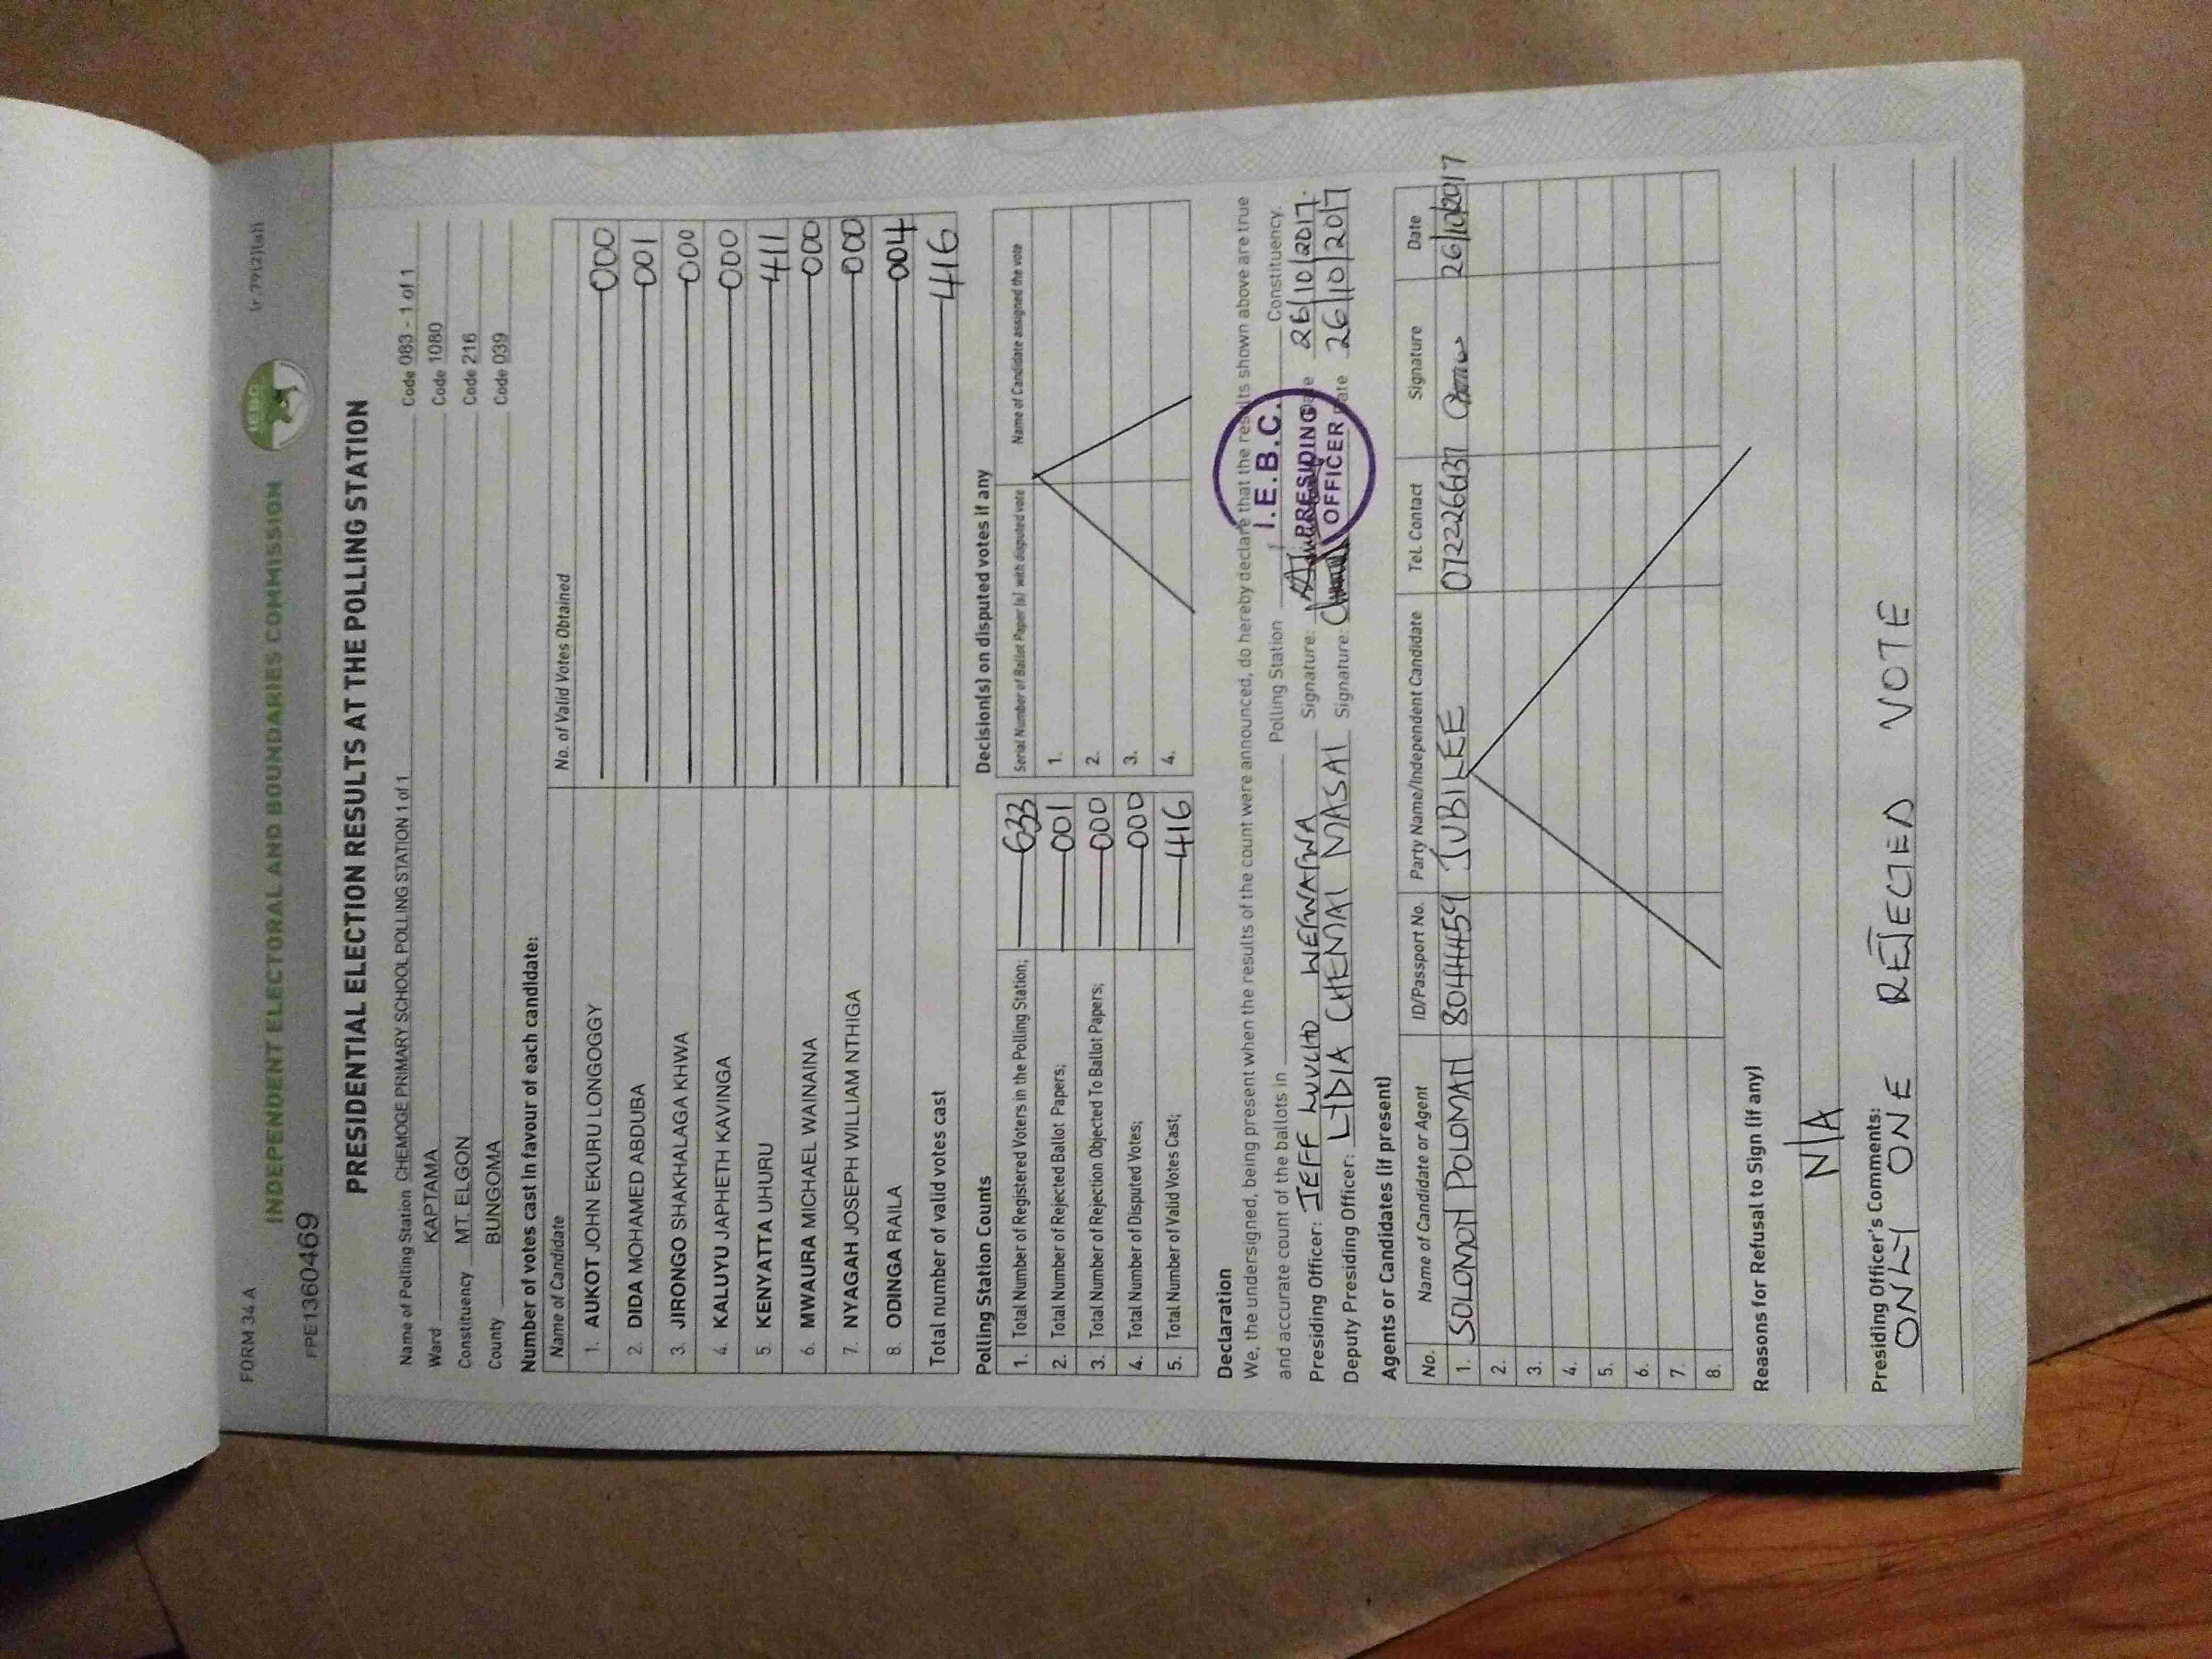 FORM 34 A
INDEPENDENT ELECTORAL AND BOUNDARIES COMMISSION
IEBC
FPE1360469
PRESIDENTIAL ELECTION RESULTS AT THE POLLING STATION
Name of Polling Station CHEMOGE PRIMARY SCHOOL POLLING STATION 1 of 1 Code 083 - 1 of 1
Ward KAPTAMA Code 1080
Constituency MT. ELGON Code 216
County BUNGOMA Code 039
Number of votes cast in favour of each candidate:
Name of Candidate No. of Valid Votes Obtained
1. AUKOT JOHN EKURU LONGOGGY 000
2. DIDA MOHAMED ABDUBA 001
3. JIRONGO SHAKHALAGA KHWA 000
4. KALUYU JAPHETH KAVINGA 000
5. KENYATTA UHURU 411
6. MWAURA MICHAEL WAINAINA 000
7. NYAGAH JOSEPH WILLIAM NTHIGA 000
8. ODINGA RAILA 004
Total number of valid votes cast 416
Polling Station Counts
1. Total Number of Registered Voters in the Polling Station; 633
2. Total Number of Rejected Ballot Papers; 001
3. Total Number of Rejection Objected To Ballot Papers; 000
4. Total Number of Disputed Votes; 000
5. Total Number of Valid Votes Cast; 416
Decision(s) on disputed votes if any
Serial Number of Ballot Paper (s) with disputed vote Name of Candidate assigned the vote
1.
2.
3.
4.
Declaration
We, the undersigned, being present when the results of the count were announced, do hereby declare that the results shown above are true
and accurate count of the ballots in Polling Station Constituency.
Presiding Officer: JEFF Signature: Date 26/10/2017.
Deputy Presiding Officer: LIDIA CHEMAI MASAI Signature: Date 26/10/2017
I.E.B.C.
PRESIDING
OFFICER
Agents or Candidates (if present)
No. Name of Candidate or Agent ID/Passport No. Party Name/Independent Candidate Tel. Contact Signature Date
1. SOLOMON POLOMAN 8044459 JUBILEE 0722266137 26/10/2017
2.
3.
4.
5.
6.
7.
8.
Reasons for Refusal to Sign (if any)
N/A
Presiding Officer's Comments:
ONLY ONE REJECTED VOTE